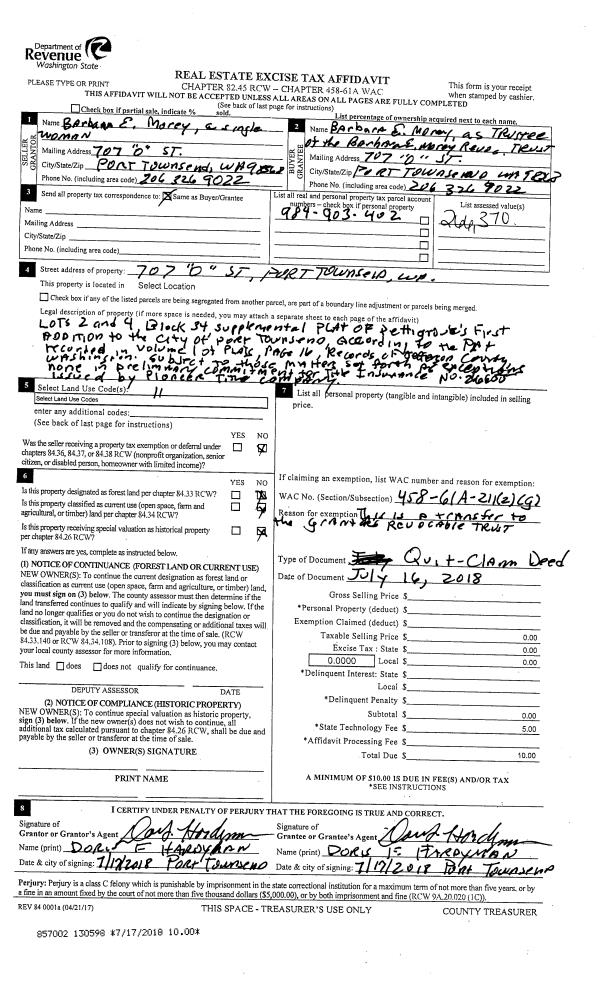 Department of
Revenue
Washington State
PLEASE TYPE OR PRINT
REAL ESTATE EXCISE TAX AFFIDAVIT
CHAPTER 82.45 RCW – CHAPTER 458-61A WAC
This form is your receipt
when stamped by cashier.
THIS AFFIDAVIT WILL NOT BE ACCEPTED UNLESS ALL AREAS ON ALL PAGES ARE FULLY COMPLETED
(See back of last page for instructions)
Check box if partial sale, indicate % sold.
List percentage of ownership acquired next to each name.
1
SELLER
GRANTOR
Name Barbara E. Morey, a single
woman
Mailing Address 707 "D" ST.
City/State/Zip PORT TOWNSEND, WA 98368
Phone No. (including area code) 206 326 9022
2
BUYER
GRANTEE
Name Barbara E. Morey, as Trustee
of the Barbara E. Morey Revoc. TRUST
Mailing Address 707 "D" ST.
City/State/Zip PORT TOWNSEND WA
Phone No. (including area code) 206 326 9022
3
Send all property tax correspondence to: Same as Buyer/Grantee
Name
Mailing Address
City/State/Zip
Phone No. (including area code)
List all real and personal property tax parcel account
numbers – check box if personal property
984-903-402
List assessed value(s)
370.
4
Street address of property: 707 "D" ST, PORT TOWNSEND, WA.
This property is located in Select Location
Check box if any of the listed parcels are being segregated from another parcel, are part of a boundary line adjustment or parcels being merged.
Legal description of property (if more space is needed, you may attach a separate sheet to each page of the affidavit)
LOTS 2 and 4, Block 34 supplemental PLAT OF Pettigrove's First
ADDITION to the CITY of PORT TOWNSEND, According to the PLAT
recorded in Volume 1 of Plats, Page 16, Records of Jefferson County,
Washington. Subject to those matters set forth as exceptions
none in preliminary commitment for Title Insurance NO.
issued by Pioneer Title Company.
5
Select Land Use Code(s): 11
Select Land Use Codes
enter any additional codes:
(See back of last page for instructions)
YES NO
Was the seller receiving a property tax exemption or deferral under
chapters 84.36, 84.37, or 84.38 RCW (nonprofit organization, senior
citizen, or disabled person, homeowner with limited income)?
6
YES NO
Is this property designated as forest land per chapter 84.33 RCW?
Is this property classified as current use (open space, farm and
agricultural, or timber) land per chapter 84.34 RCW?
Is this property receiving special valuation as historical property
per chapter 84.26 RCW?
If any answers are yes, complete as instructed below.
(1) NOTICE OF CONTINUANCE (FOREST LAND OR CURRENT USE)
NEW OWNER(S): To continue the current designation as forest land or
classification as current use (open space, farm and agriculture, or timber) land,
you must sign on (3) below. The county assessor must then determine if the
land transferred continues to qualify and will indicate by signing below. If the
land no longer qualifies or you do not wish to continue the designation or
classification, it will be removed and the compensating or additional taxes will
be due and payable by the seller or transferor at the time of sale. (RCW
84.33.140 or RCW 84.34.108). Prior to signing (3) below, you may contact
your local county assessor for more information.
This land does does not qualify for continuance.
DEPUTY ASSESSOR DATE
(2) NOTICE OF COMPLIANCE (HISTORIC PROPERTY)
NEW OWNER(S): To continue special valuation as historic property,
sign (3) below. If the new owner(s) does not wish to continue, all
additional tax calculated pursuant to chapter 84.26 RCW, shall be due and
payable by the seller or transferor at the time of sale.
(3) OWNER(S) SIGNATURE
PRINT NAME
7
List all personal property (tangible and intangible) included in selling
price.
If claiming an exemption, list WAC number and reason for exemption:
WAC No. (Section/Subsection) 458-61A-211(2)(g)
Reason for exemption This is a transfer to
the Grantor's REVOCABLE TRUST
Type of Document Quit-Claim Deed
Date of Document July 16, 2018
Gross Selling Price $
*Personal Property (deduct) $
Exemption Claimed (deduct) $
Taxable Selling Price $ 0.00
Excise Tax : State $ 0.00
0.0000 Local $ 0.00
*Delinquent Interest: State $
Local $
*Delinquent Penalty $
Subtotal $ 0.00
*State Technology Fee $ 5.00
*Affidavit Processing Fee $
Total Due $ 10.00
A MINIMUM OF $10.00 IS DUE IN FEE(S) AND/OR TAX
*SEE INSTRUCTIONS
8
I CERTIFY UNDER PENALTY OF PERJURY THAT THE FOREGOING IS TRUE AND CORRECT.
Signature of
Grantor or Grantor's Agent
Name (print) DORIS F HARDYMAN
Date & city of signing: 7/17/2018 PORT TOWNSEND
Signature of
Grantee or Grantee's Agent
Name (print) DORIS F HARDYMAN
Date & city of signing: 7/17/2018 Port Townsend
Perjury: Perjury is a class C felony which is punishable by imprisonment in the state correctional institution for a maximum term of not more than five years, or by
a fine in an amount fixed by the court of not more than five thousand dollars ($5,000.00), or by both imprisonment and fine (RCW 9A.20.020 (1C)).
REV 84 0001a (04/21/17)
THIS SPACE - TREASURER'S USE ONLY
COUNTY TREASURER
857002 130598 *7/17/2018 10.00*